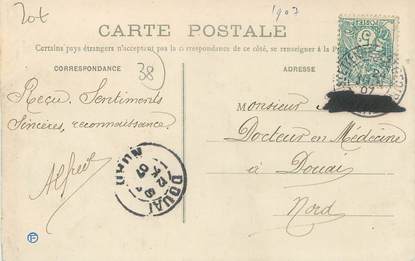 20f
1907
CARTE POSTALE
Certains pays étrangers n'acceptent pas la correspondance de ce côté, se renseigner à la
CORRESPONDANCE
38
ADRESSE
Reçu, Sentiments
Sincères, reconnaissance.
Alfred
Monsieur
Docteur en Médecine
à Douai
Nord
DOUAI
NORD
12
07
07
E